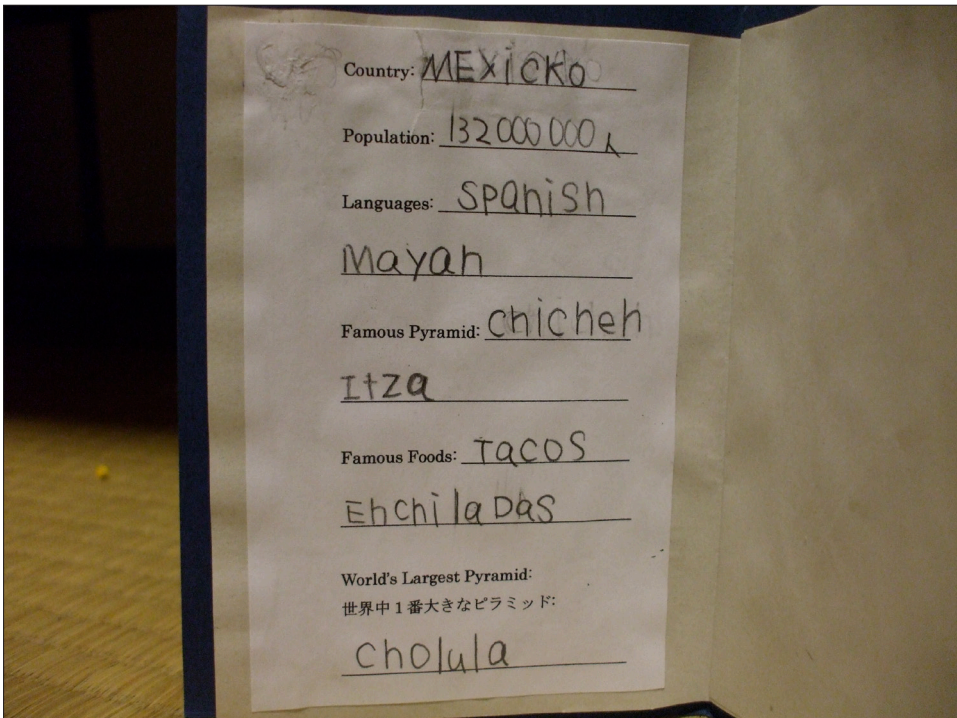 Country: MEXicKo
Population: 132000000人
Languages: SPanish
Mayan
Famous Pyramid: chichen
Itza
Famous Foods: Tacos
EnchilaDas
World's Largest Pyramid:
世界中1番大きなピラミッド:
cholula